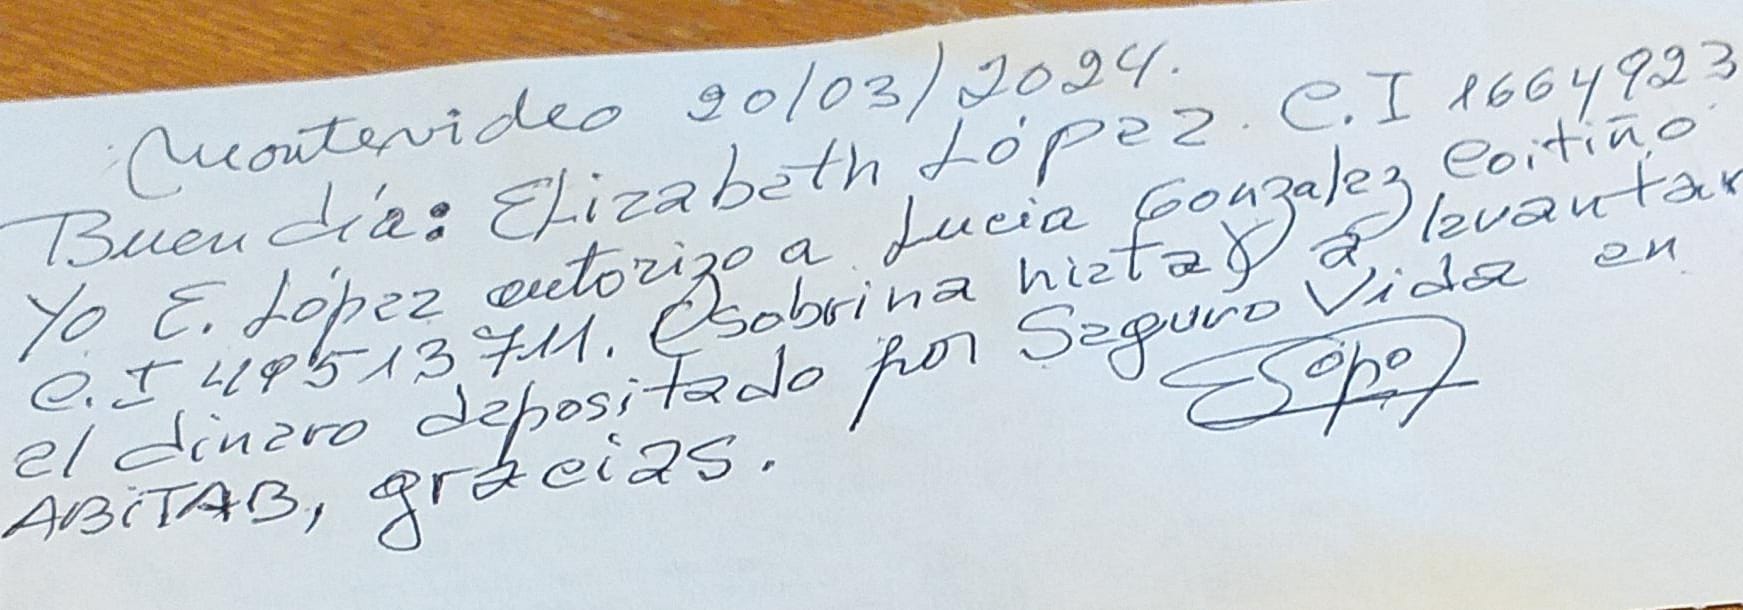 Montevideo 20/03/2024.
Buen día: Elizabeth López. C.I 1664923
Yo E. López autorizo a Lucia Gonzalez Coitiño
C.I 49513711. (sobrina nieta) a levantar
el dinero depositado por Seguro Vida en
ABiTAB, gracias.
ELópez